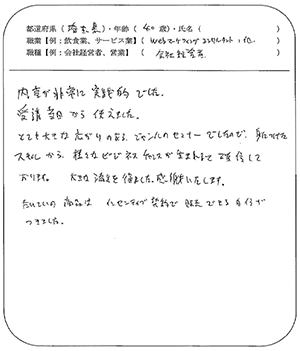 都道府県（埼玉県）・年齢（40歳）・氏名（　　　　）
職業【例：飲食業、サービス業】（Webマーケティングコンサルタント、他）
職種【例：会社経営者、営業】（会社経営者）
内容が非常に実践的でした。
受講当日から使えました。
とても大きな広がりのあるジャンルのセミナーでしたので、身につけた
スキルから、様々なビジネスチャンスが生まれると確信して
おります。大きな流れを得ました。感謝いたします。
たいていの商品はインセンティブ契約で販売できる自信が
つきました。